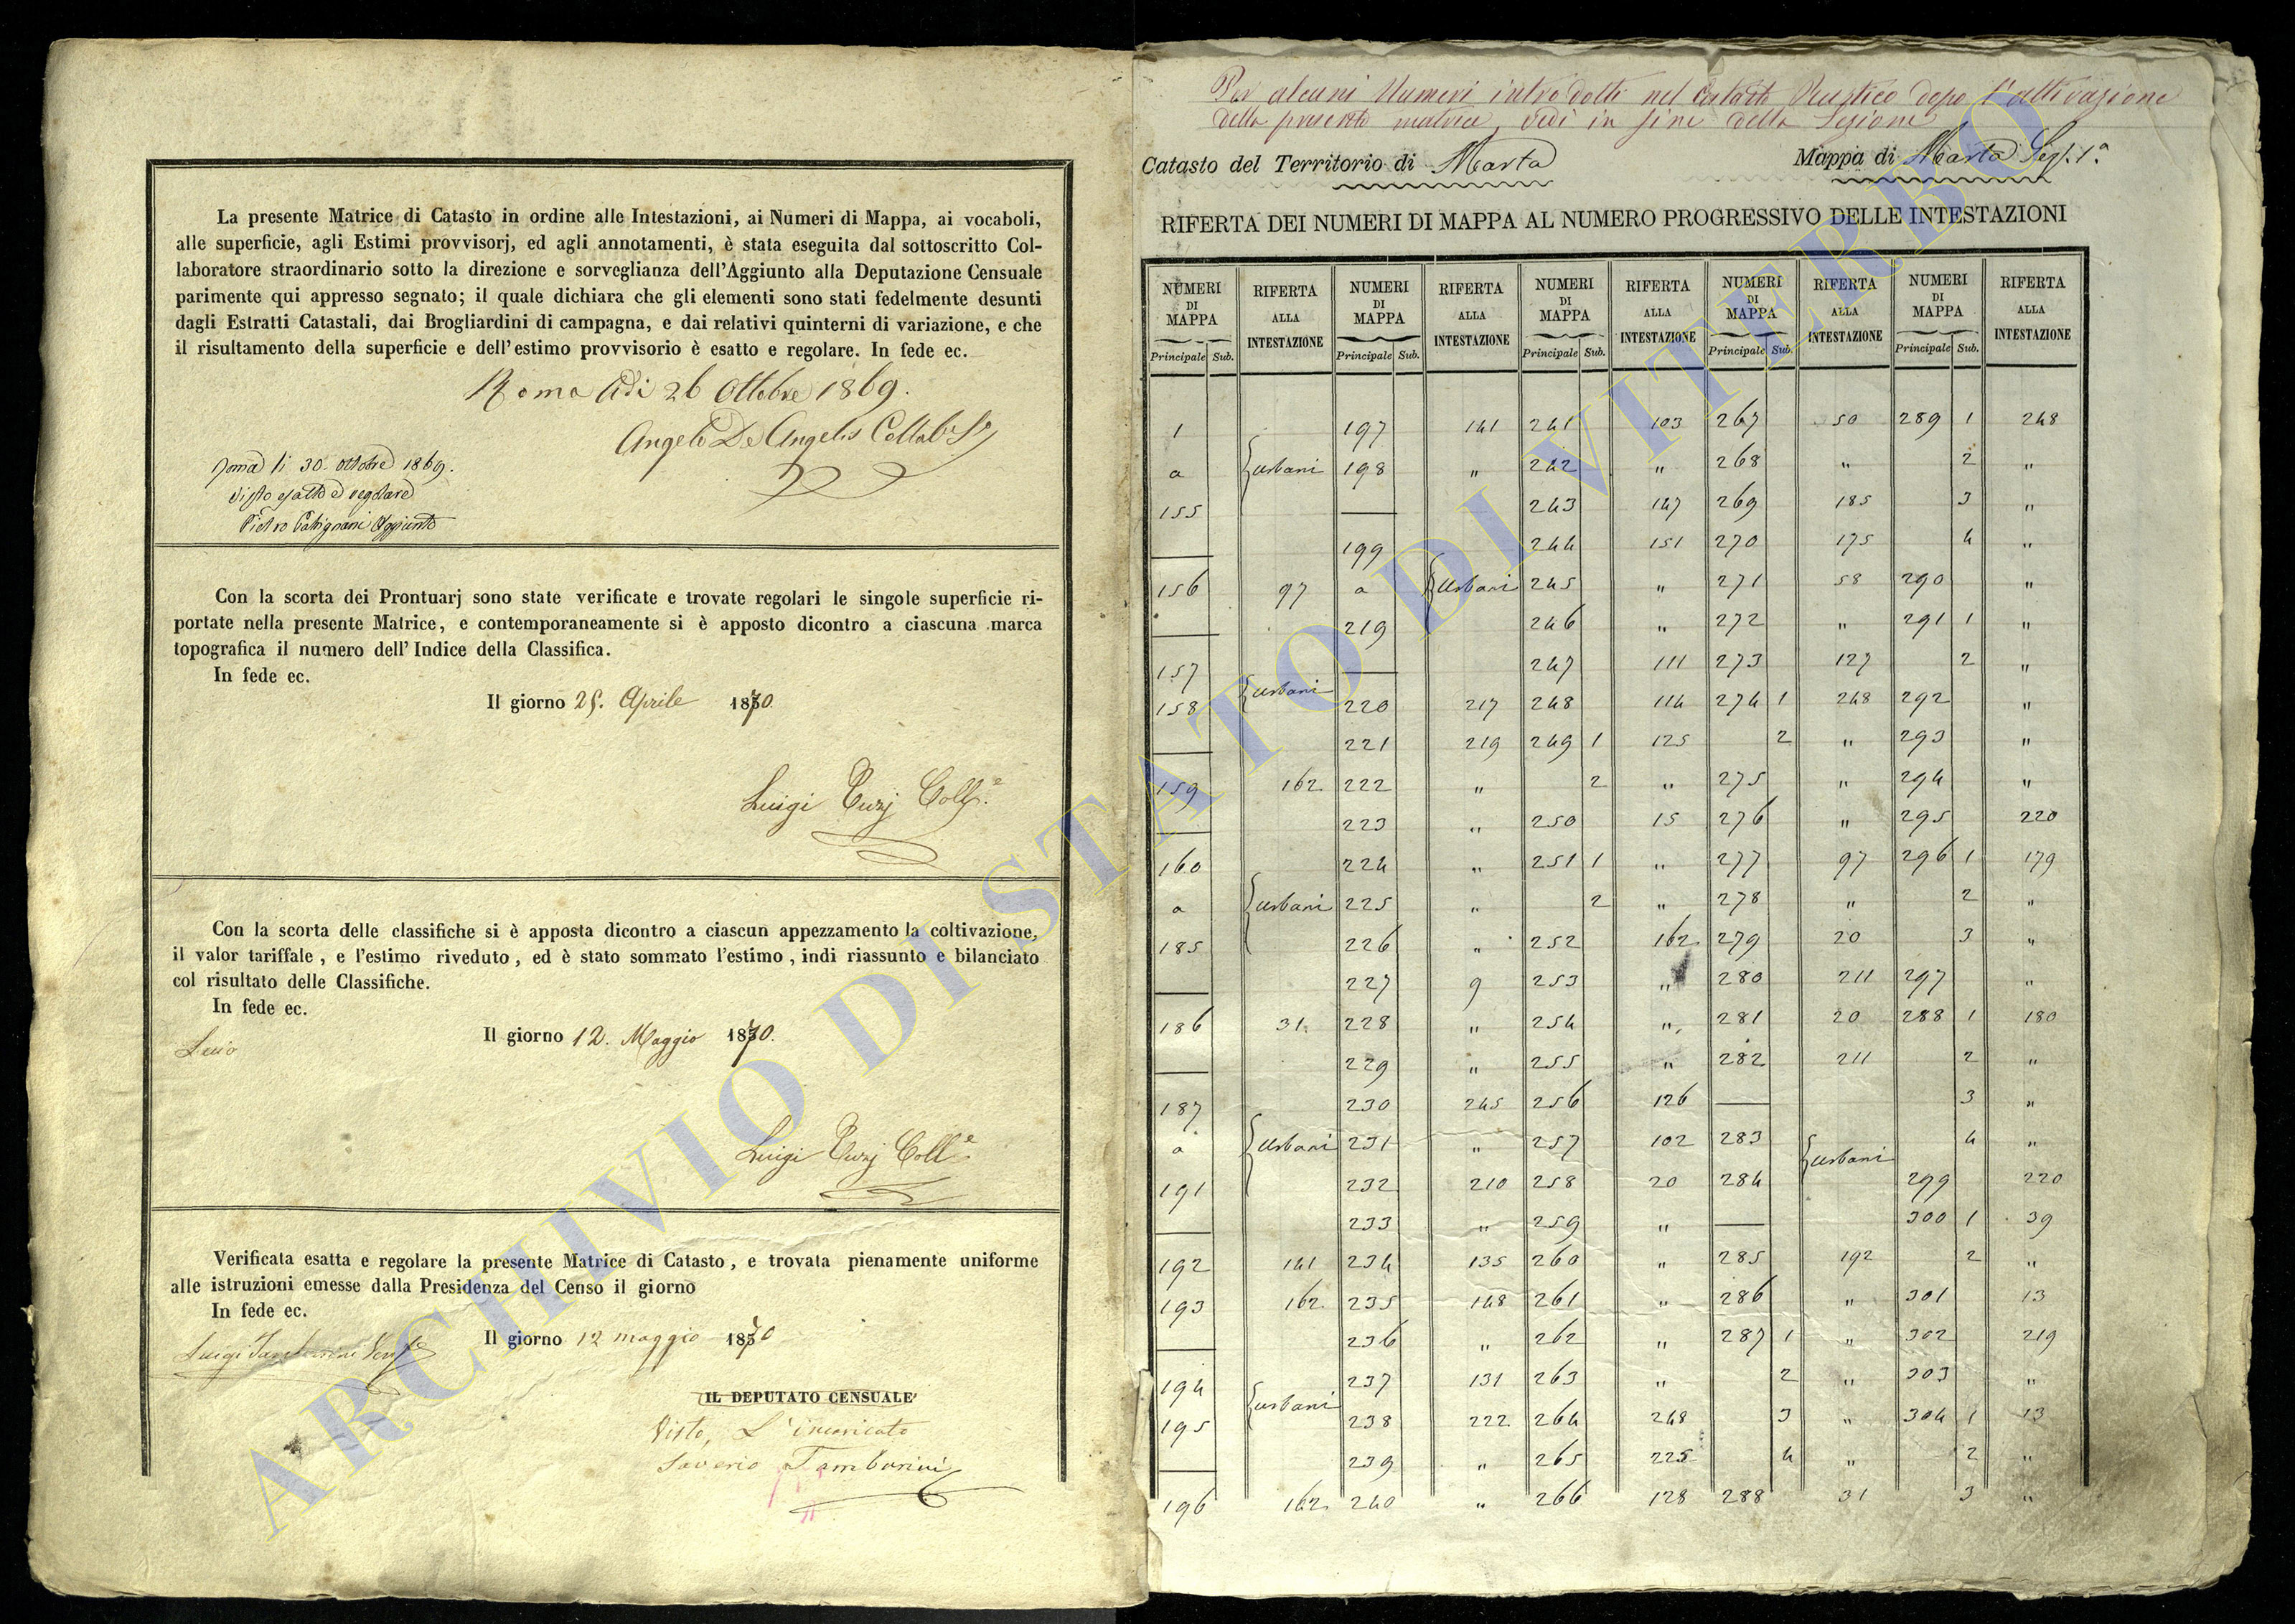 La presente Matrice di Catasto in ordine alle Intestazioni, ai Numeri di Mappa, ai vocaboli,
alle superficie, agli Estimi provvisorj, ed agli annotamenti, è stata eseguita dal sottoscritto Col-
laboratore straordinario sotto la direzione e sorveglianza dell'Aggiunto alla Deputazione Censuale
parimente qui appresso segnato; il quale dichiara che gli elementi sono stati fedelmente desunti
dagli Estratti Catastali, dai Brogliardini di campagna, e dai relativi quinterni di variazione, e che
il risultamento della superficie e dell'estimo provvisorio è esatto e regolare. In fede ec.
Roma Adi 26 Ottobre 1869.
Angelo De Angelis
Roma li 30. ottobre 1869.
Visto esatto e regolare
Pietro Aggiunto
Con la scorta dei Prontuarj sono state verificate e trovate regolari le singole superficie ri-
portate nella presente Matrice, e contemporaneamente si è apposto dicontro a ciascuna marca
topografica il numero dell'Indice della Classifica.
In fede ec.
Il giorno 25. Aprile 1870
Luigi
Con la scorta delle classifiche si è apposta dicontro a ciascun appezzamento la coltivazione,
il valor tariffale, e l'estimo riveduto, ed è stato sommato l'estimo, indi riassunto e bilanciato
col risultato delle Classifiche.
In fede ec.
Il giorno 12. Maggio 1870.
Luigi
Verificata esatta e regolare la presente Matrice di Catasto, e trovata pienamente uniforme
alle istruzioni emesse dalla Presidenza del Censo il giorno
In fede ec.
Il giorno 12 maggio 1870
Luigi
IL DEPUTATO CENSUALE
Visto, L'incaricato
Saverio Tamburini
Per alcuni Numeri introdotti nel Catasto Rustico dopo l'attivazione
della presente matrice, vedi in fine della Sezione
Catasto del Territorio di Marta Mappa di Marta Sez. 1.ª
RIFERTA DEI NUMERI DI MAPPA AL NUMERO PROGRESSIVO DELLE INTESTAZIONI
NUMERI DI MAPPA RIFERTA ALLA INTESTAZIONE NUMERI DI MAPPA RIFERTA ALLA INTESTAZIONE NUMERI DI MAPPA RIFERTA ALLA INTESTAZIONE NUMERI DI MAPPA RIFERTA ALLA INTESTAZIONE NUMERI DI MAPPA RIFERTA ALLA INTESTAZIONE
Principale Sub. Principale Sub. Principale Sub. Principale Sub. Principale Sub.
1 197 141 241 103 267 50 289 1 248
a urbani 198 " 242 " 268 " 2 "
155 243 147 269 185 3 "
199 244 151 270 175 4 "
156 97 a urbani 245 " 271 58 290 "
219 246 " 272 " 291 1 "
157 urbani 247 111 273 127 2 "
158 220 217 248 114 274 1 248 292 "
221 219 249 1 125 2 " 293 "
159 162 222 " 2 " 275 " 294 "
223 " 250 15 276 " 295 220
160 224 " 251 1 " 277 97 296 1 179
a urbani 225 " 2 " 278 " 2 "
185 226 " 252 162 279 20 3 "
227 9 253 " 280 211 297 "
186 31 228 " 254 " 281 20 288 1 180
229 " 255 " 282 211 2 "
187 230 245 256 126 3 "
a urbani 231 " 257 102 283 urbani 4 "
191 232 210 258 20 284 299 220
233 " 259 " 300 1 39
192 141 234 135 260 " 285 192 2 "
193 162 235 148 261 " 286 " 301 13
236 " 262 " 287 1 " 302 219
194 urbani 237 131 263 " 2 " 303 "
195 238 222 264 248 3 " 304 1 13
239 " 265 225 4 " 2 "
196 162 240 " 266 128 288 31 3 "
ARCHIVIO DI STATO DI VITERBO